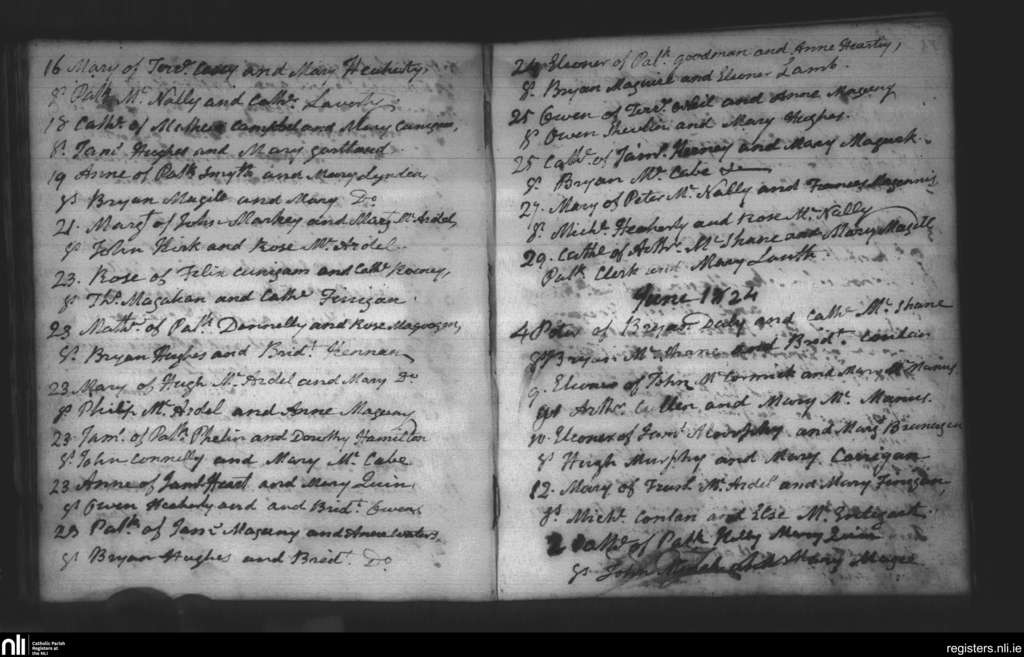 16 Mary of Terce. Casey and Mary Heaherty,
gs Patk. Mc. Nally and Cathe. Laverty
18 Cathe. of Mathew Campbel and Mary Cunigam,
gs. Jams. Hughes and Mary gartland
19 Anne of Patk. Smyth and Mary Lynden
gs Bryan Magill and Mary Do
21. Margt of John Markey and Margt Mc. Ardel,
gs John Kirk and Rose Mc. Ardel
23. Rose of Felix Cunigam and Cathe Rooney,
gs Ths. Magahan and Cathe Finigan
23 Mathw. of Patk. Donnelly and Rose
gs. Bryan Hughes and Bridt. Hennan
23 Mary of Hugh Mc. Ardel and Mary Do
gs Philip Mc. Ardel and Anne
23. Jams. of Patk. Phelin and Dorothy Hamilton
gs. John Connelly and Mary Mc. Cabe
23 Anne of and Mary Quin,
gs Owen Heaherty and and Bridt. Owens
23 Patk. of Jams. and Anne Waters,
gs Bryan Hughes and Bridt. Do
24 Eleoner of Patk. goodman and Anne Hearty,
gs. Bryan Maguire and Eleoner Lamb.
25 Owen of and Anne
gs Owen and Mary Hughes.
25 Cathe. of Jams. and Mary
gs Bryan Mc. Cabe &c
27. Mary of Peter Mc. Nally and Frances Magennis
gs. Michl. Heaherty and Rose Mc. Nally
29. Cathe of Arthr. Mc Shane and Mary Magill
Patk. Clerk and Mary Louth
June 1824
4 Peter of Bryan Daly and Cathe Mc. Shane
gs Bryan Mc. Shane and Bridt. Conlan
9. Eleoner of John Mc. Cormick and Mary Mc Manus
gs Arthr. Cullen and Mary Mc. Manus.
10. Eleoner of Jams and Margt Branagan
gs Hugh Murphy and Mary Corrigan
12. Mary of Mc. Ardel and Mary Finigan,
gs. Michl. Conlan and Else Mc.
Cathe. of Patk. Mary Quin
gs John Mary Magee
nli
Catholic Parish
Registers at
the NLI
registers.nli.ie